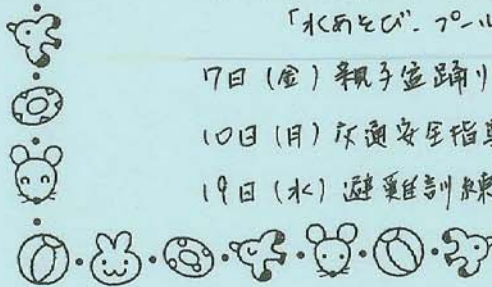 「水あそび」- プール
7日(金) 親子盆踊り
10日(月) 交通安全指導
19日(水) 避難訓練